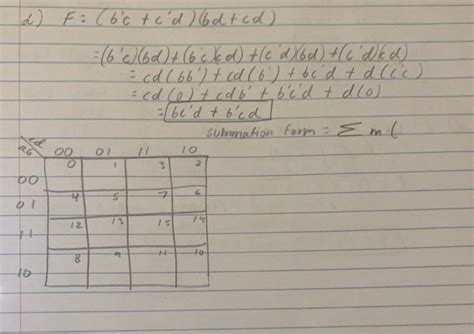 d) F = (b'c + c'd)(bd + cd)
= (b'c)(bd) + (b'c)(cd) + (c'd)(bd) + (c'd)(cd)
= cd (bb') + cd (b') + bc'd + d(c'c)
= cd (0) + cdb' + b'c'd + d(0)
= bc'd + b'cd
summation form = ∑ m (
cd
ab 00 01 11 10
0 1 3 2
00
4 5 7 6
01
12 13 15 14
11
8 9 11 10
10